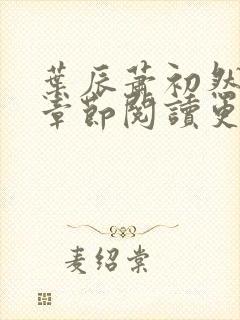 葉辰蕭初然
章節閱讀更
麦绍棠